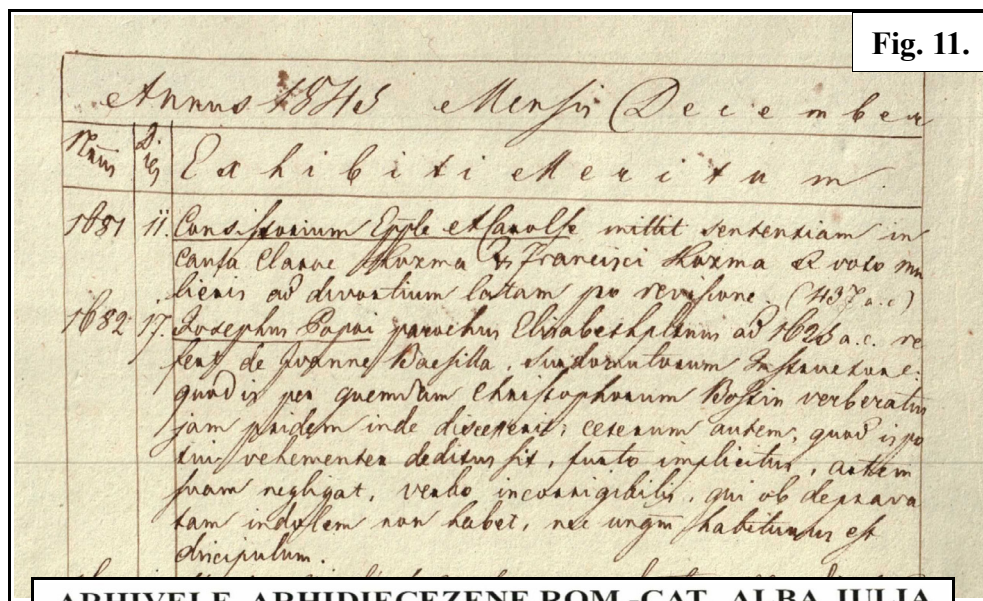 Fig. 11.
Annus 1845 Mensis December
Num Dies
Exhibiti Meritum
1681 11. Consistorium Epple et Carolse mittit sententiam in
causa Clarae Kuzma Francisci Kuzma a voto mu
lieris ad divortium latam pro revisione. (437 a.c)
1682 17. Josephus Papai parochus Elisabethplanus ad 1625 a.c. re
fert de Joanne surdomutorum
quod is per quemdam Christophorum verberatus
jam pridem inde discesserit; ceterum autem, quod is po
tui vehementer deditus sit, furto implicitus, artem
suam negligat, verbo incorrigibilis, qui ob deprava
tam indolem non habet, nec unqm habiturus est
discipulum.
ARHIVELE ARHIDIECEZENE ROM.-CAT. ALBA IULIA